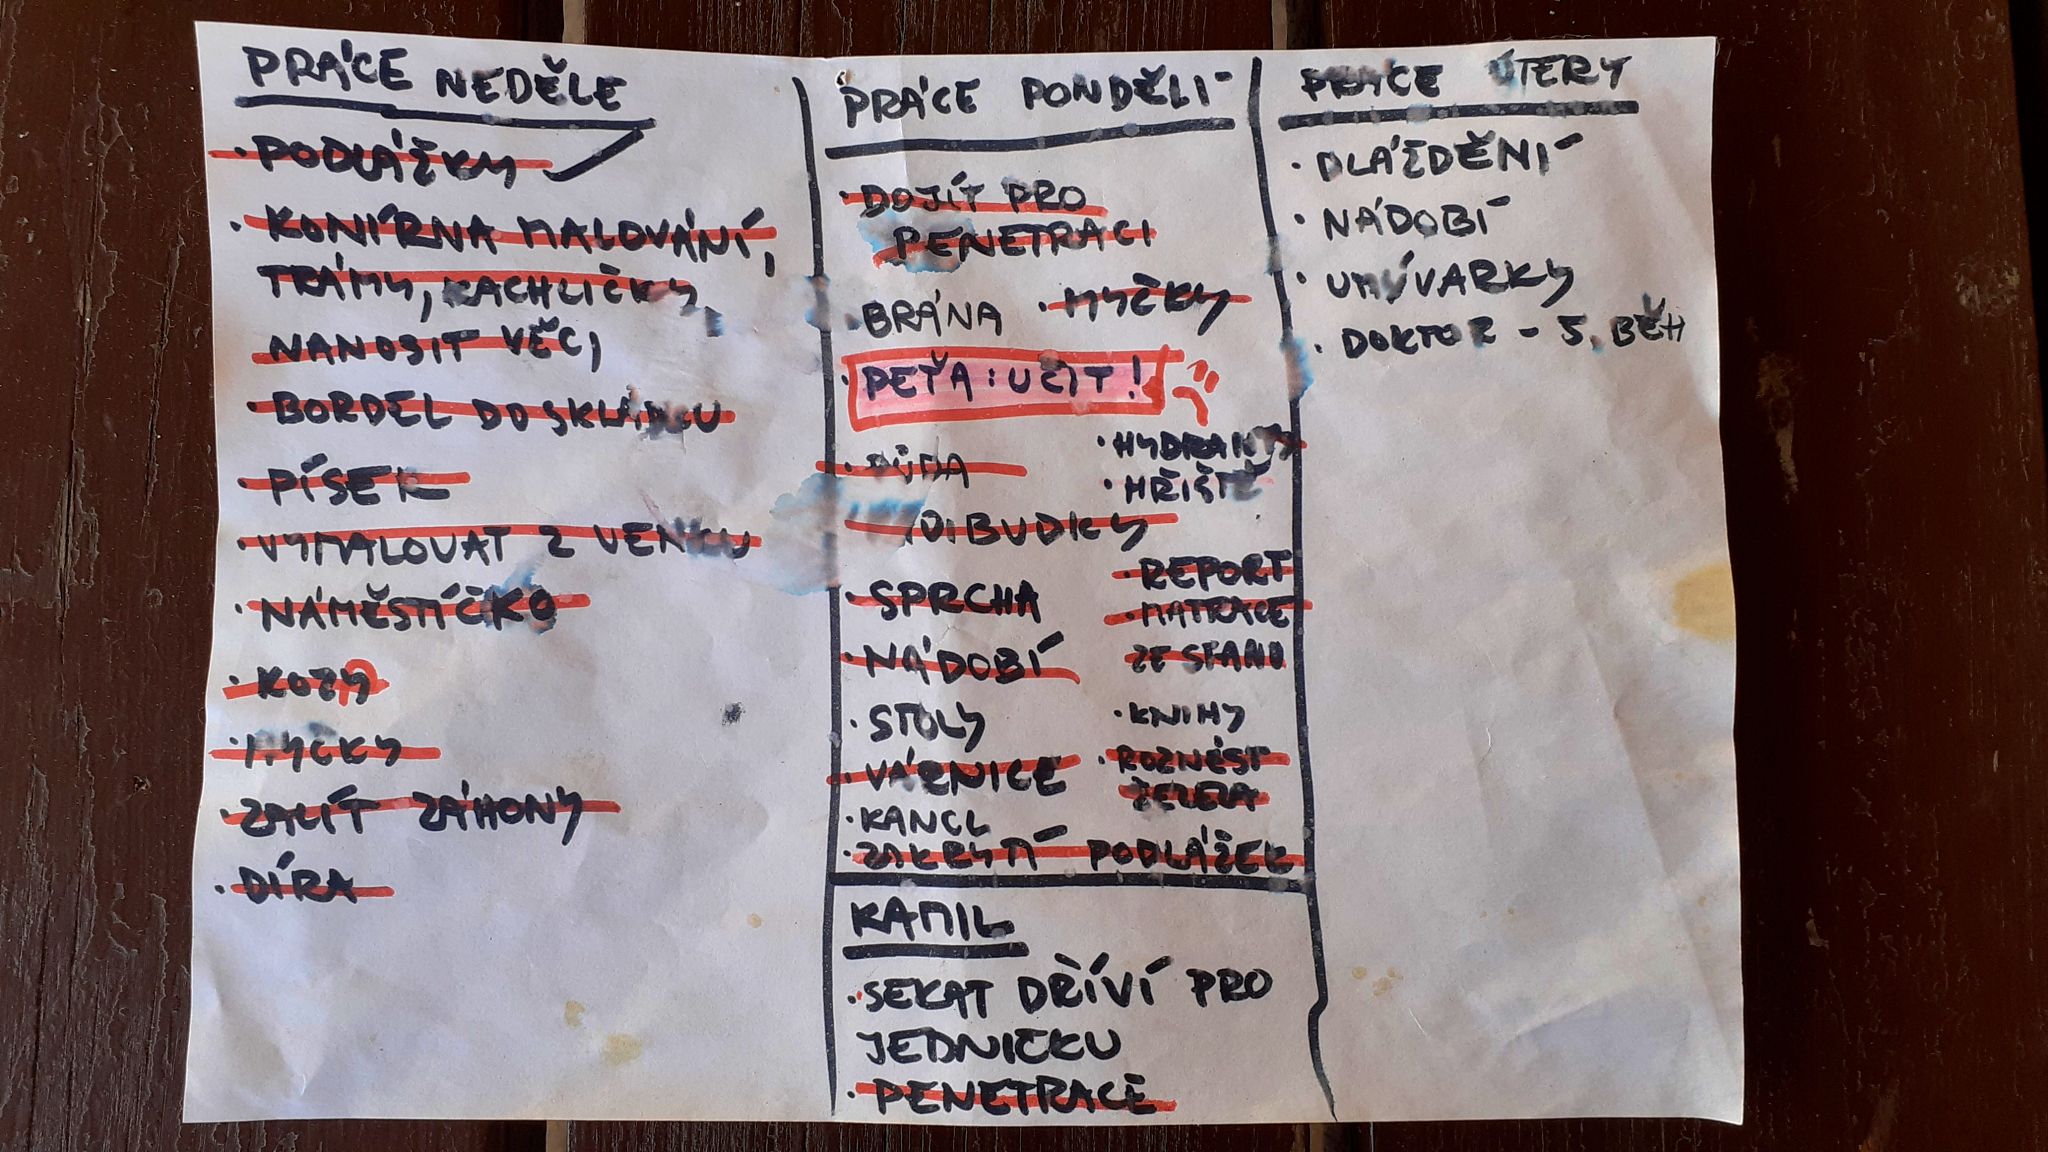 PRÁCE NEDĚLE
· PODLÁŽKY
· KONÍRNA MALOVÁNÍ,
TRÁMY, KACHLIČKY,
NANOSIT VĚCI
· BORDEL DO SKLÁDKU
· PÍSEK
· VYMALOVAT Z VENKU
· NÁMĚSTÍČKO
· KOZY
· MYČKY
· ZALÍT ZÁHONY
· DÍRA
PRÁCE PONDĚLÍ
· DOJÍT PRO
PENETRACI
· BRÁNA
· MYČKY
· PEŤA: UČIT!
· PŮDA
· HYDRANTY
· HŘIŠTĚ
BUDKY
· REPORT
· SPRCHA
· MATRACE
ZE STANU
· NÁDOBÍ
· STOLY
· KNIHY
· VÁRNICE
· ROZNÉST
ŽELEZA
· KANCL
· ZAKRYTÍ PODLÁŽEK
KAMIL
· SEKAT DŘÍVÍ PRO
JEDNIČKU
· PENETRACE
PRÁCE ÚTERY
· DLÁŽDĚNÍ
· NÁDOBÍ
· UMÝVARKY
· DOKTOR - 5. BĚH